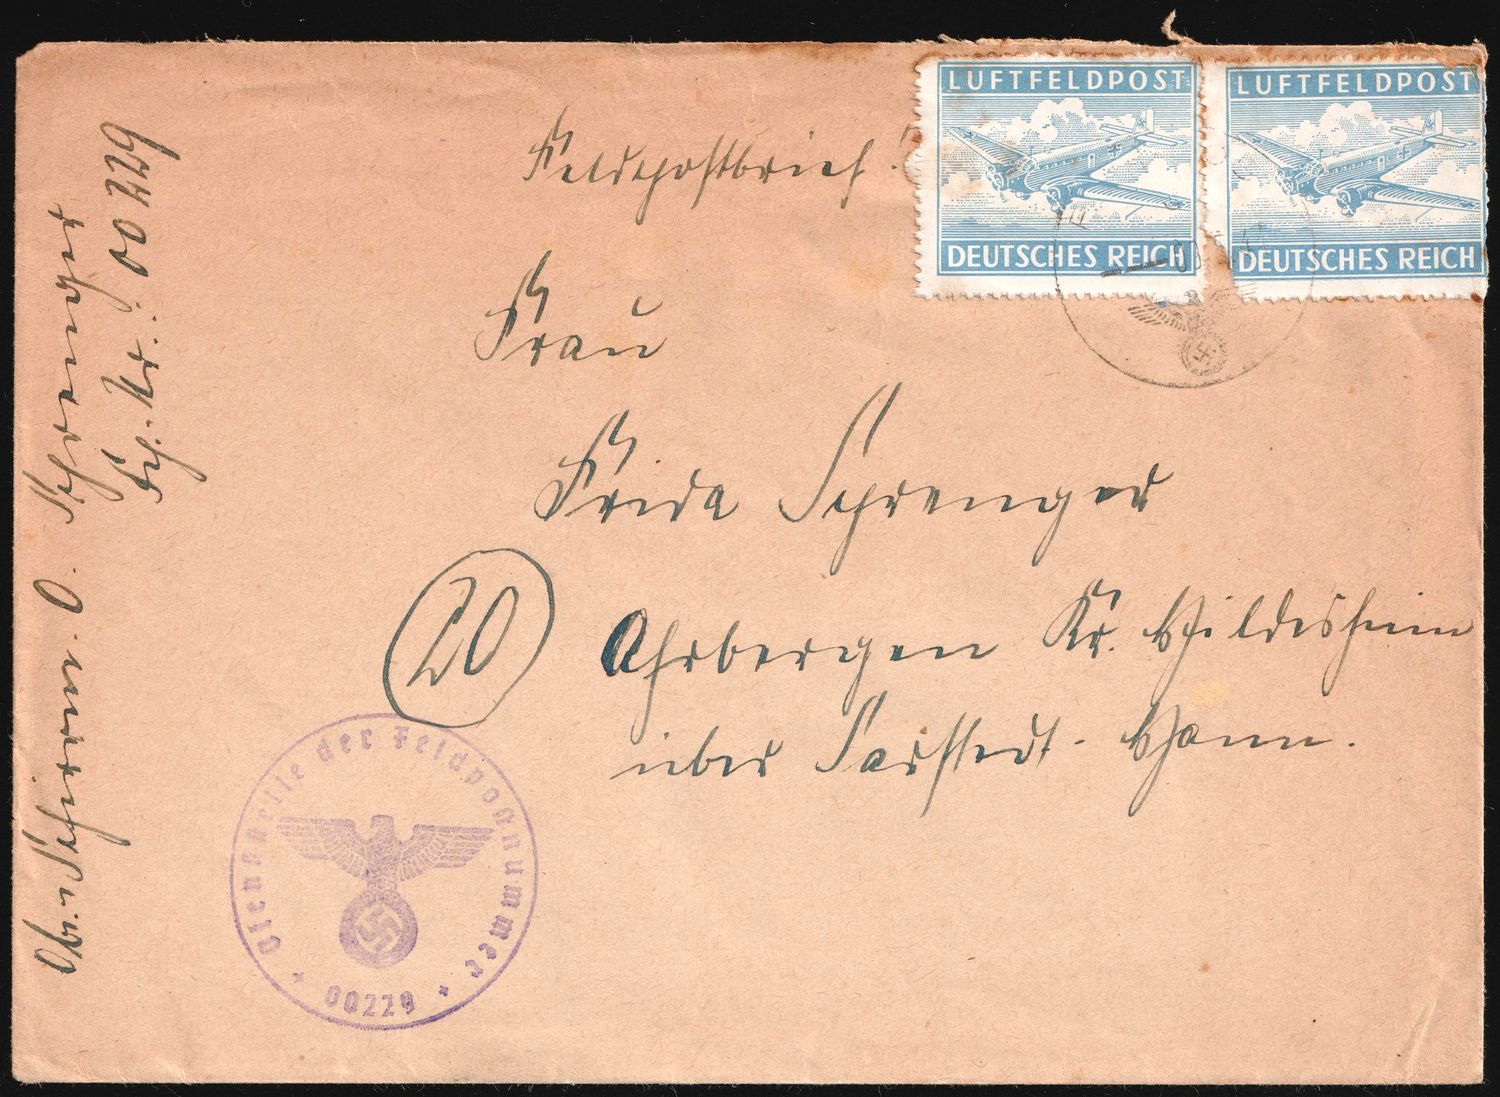 LUFTFELDPOST
DEUTSCHES REICH
LUFTFELDPOST
DEUTSCHES REICH
Feldpostbrief.
Frau
Frida Sprenger
20
Ahrbergen Kr. Hildesheim
über Sarstedt - Hann.
Abs. Schirrm. O. Sprenger
Fp. Nr.: 00229
Dienststelle der Feldpostnummer
00229